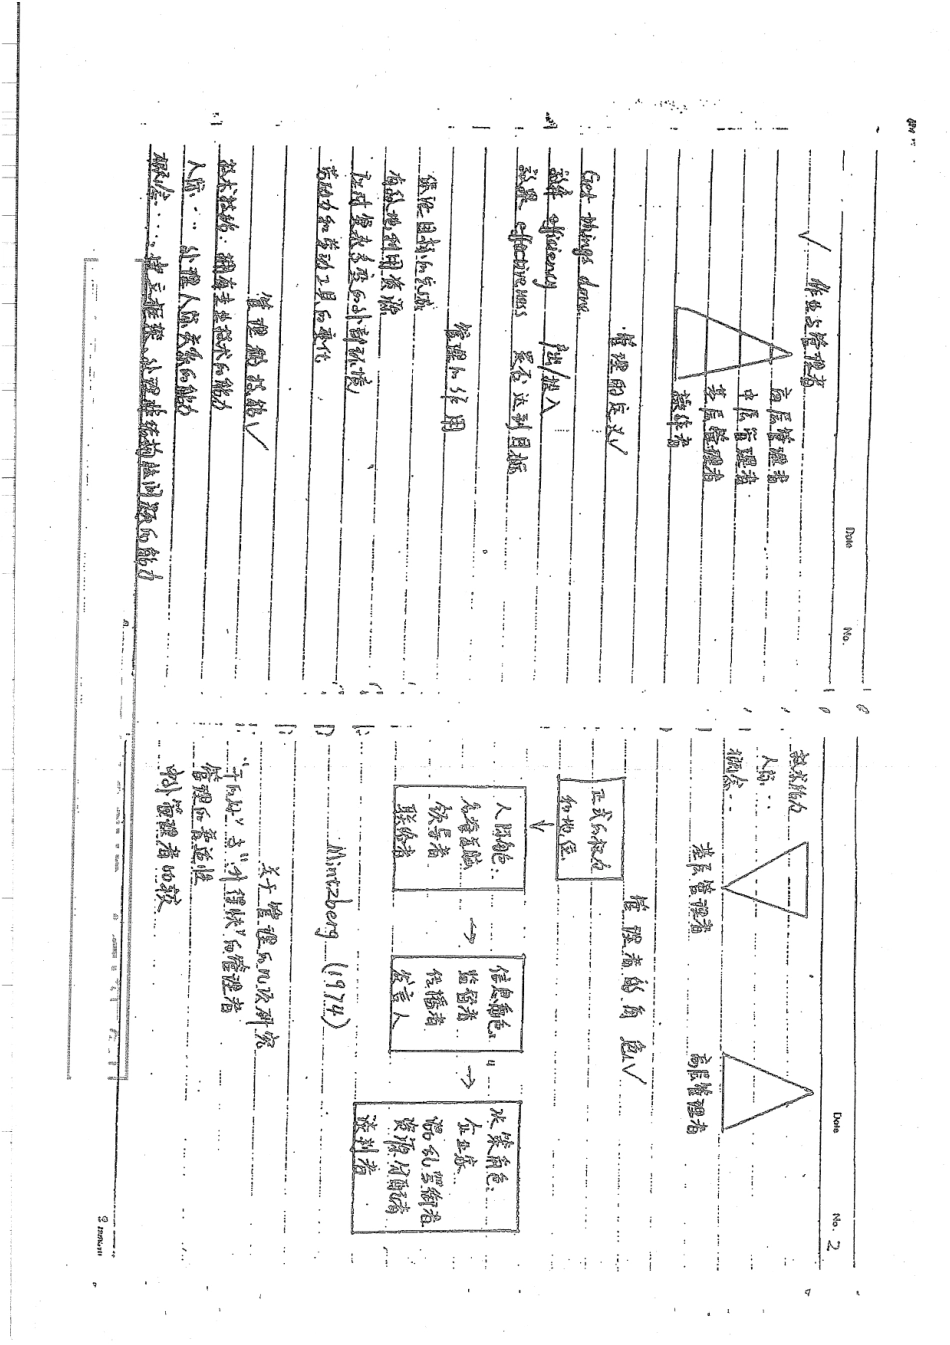 Date No.
作业与管理者
高层管理者
中层管理者
基层管理者
操作者
管理的定义√
Get things done.
效率 efficiency 产出/投入
效果 effectiveness 是否达到目标
管理的作用
保证目标的完成
有效地利用资源
应对复杂多变的外部环境
劳动力和劳动工具的变化
管理的技能√
技术技能：拥有专业技术的能力
人际…处理人际关系的能力
概念…，建立框架、处理非结构性问题的能力
Date No. 2
技术能力
人际…
概念…
基层管理者 高层管理者
管理者的角色√
正式的权力
和地位
人际角色：
名誉首脑
领导者
联络者
信息角色：
监督者
传播者
发言人
决策角色：
企业家
混乱驾御者
资源分配者
谈判者
Mintzberg (1974)
关于管理的几项研究
"干的好"与"升得快"的管理者
管理的普遍性
中外管理者的比较